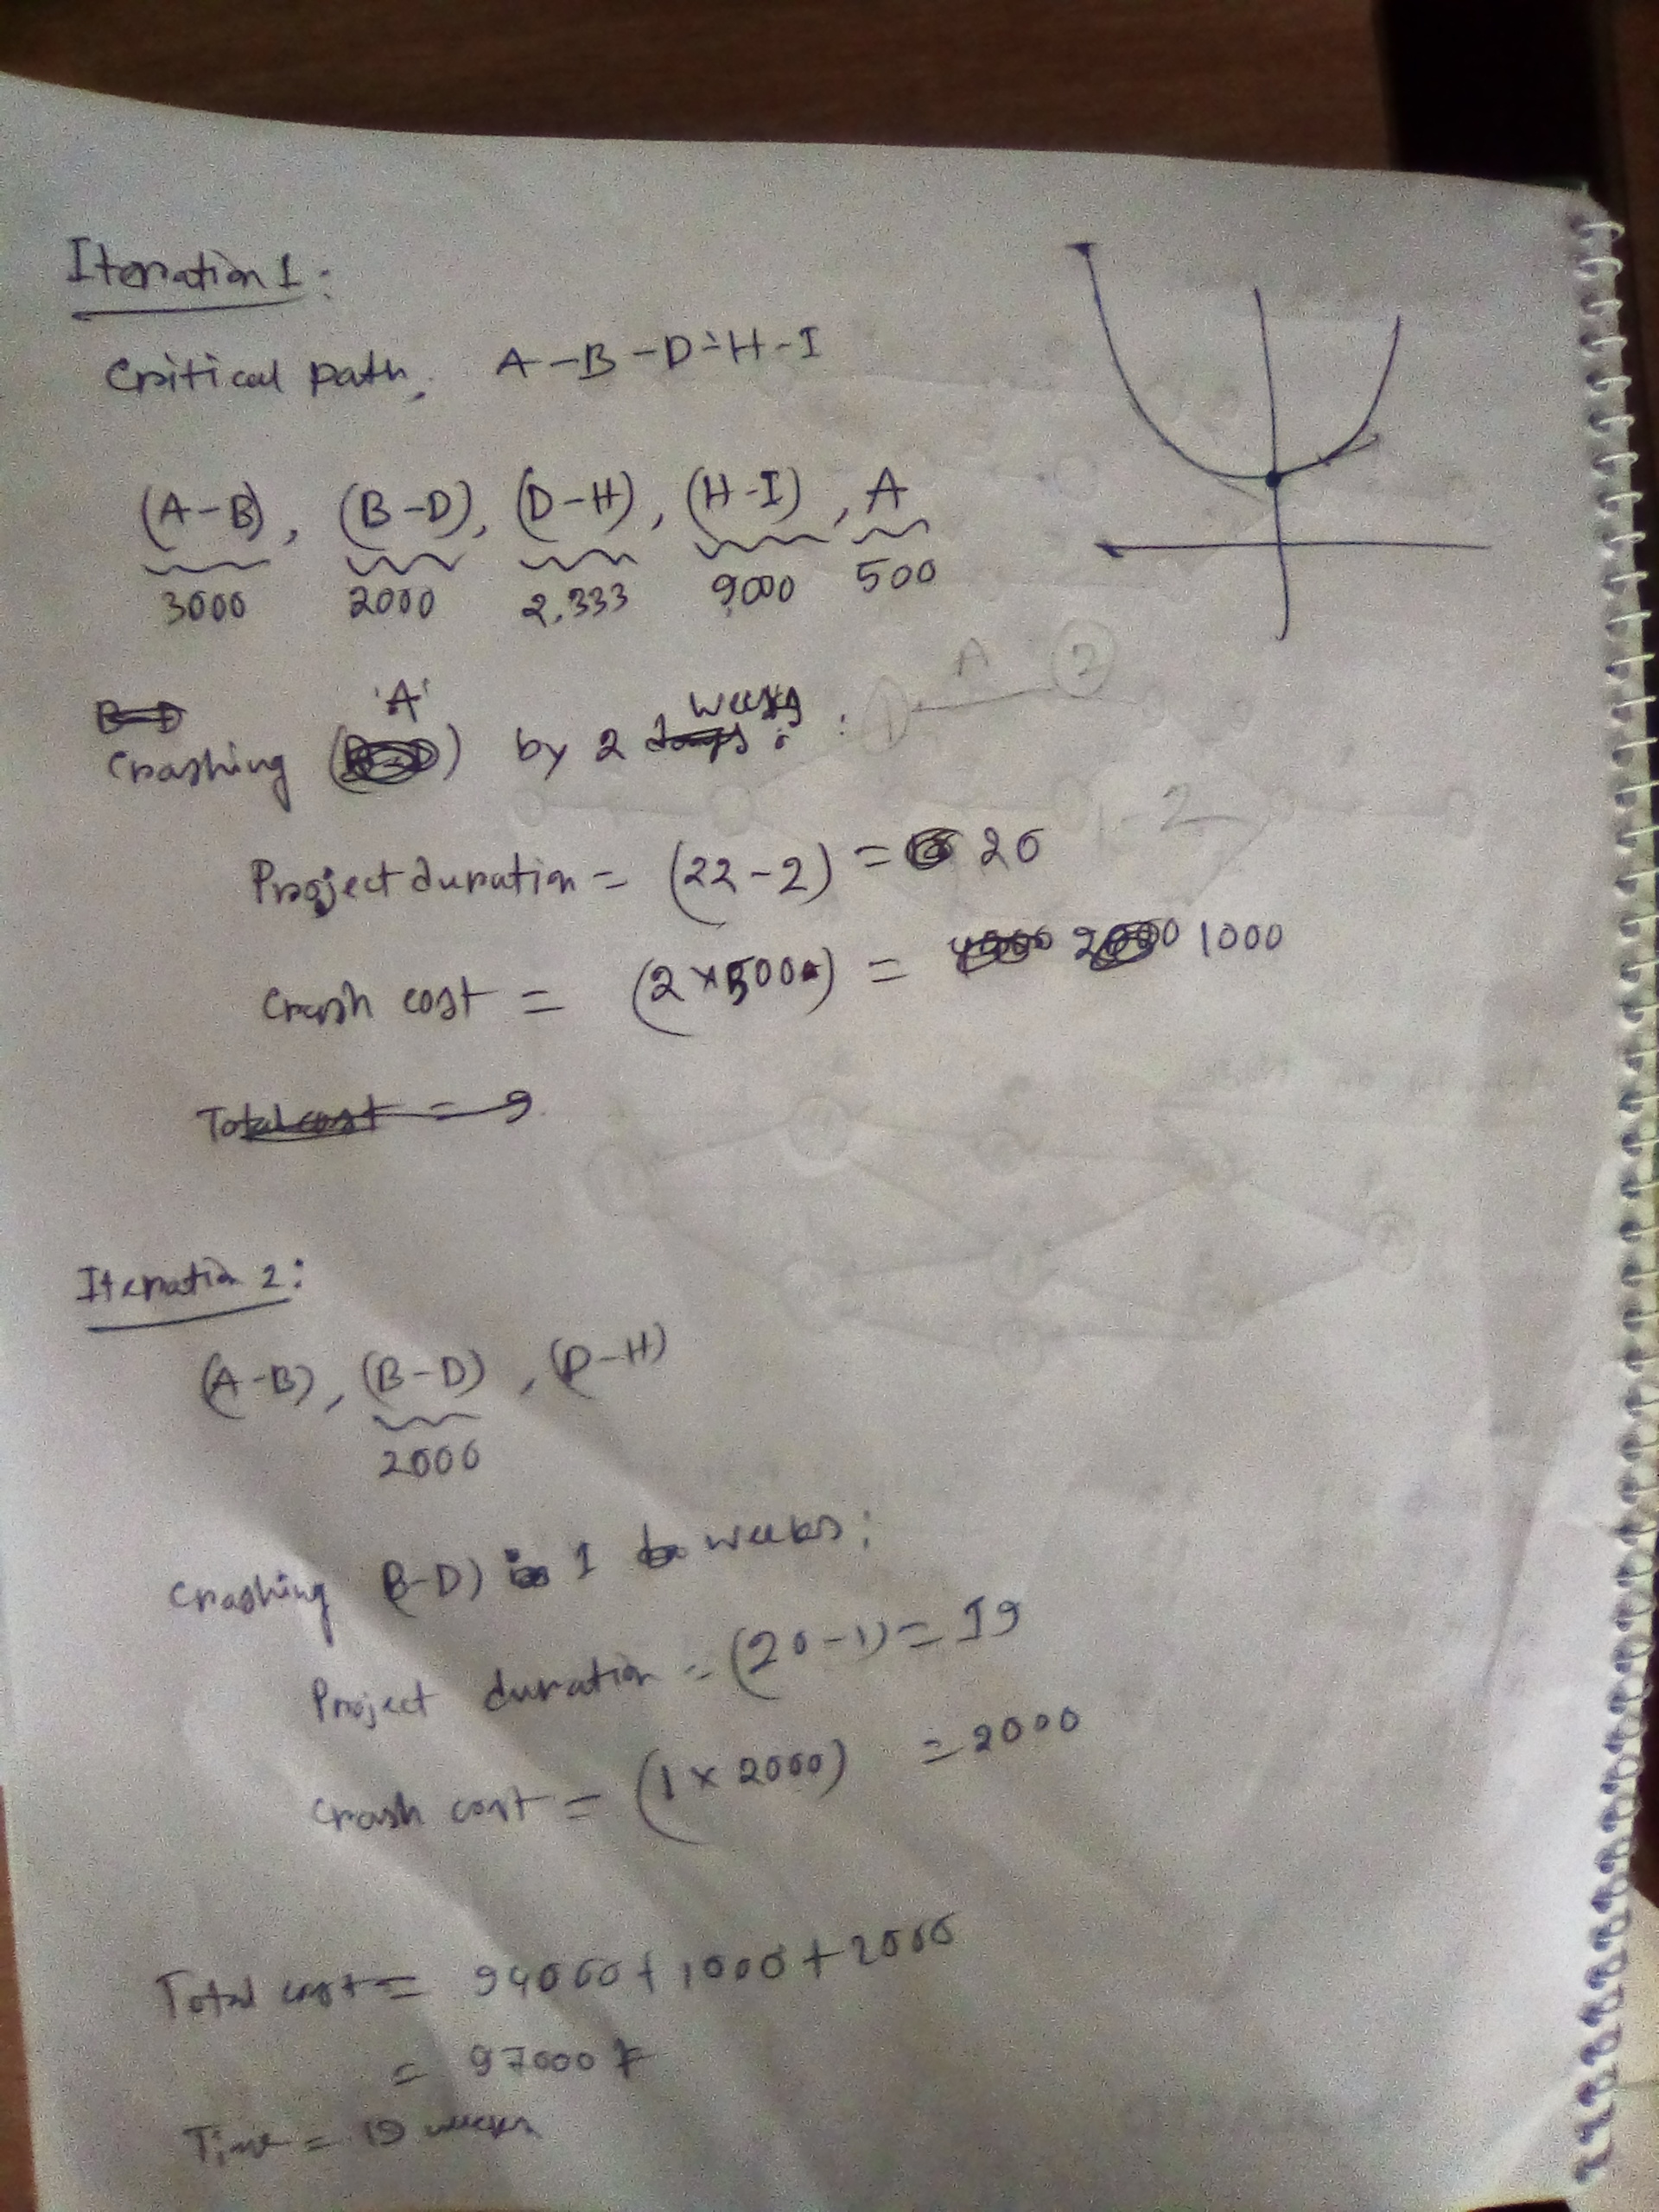 Iteration 1:
Critical path. A-B-D-H-I
(A-B), (B-D), (D-H), (H-I), A
3000 2000 2,333 9000 500
B-D
'A' weeks
Crashing ( ) by 2 days :
A 2
1
Project duration = (22-2) = 20
Crash cost = (2×500) = 1000
Total cost = 9
Iteratin 2:
(A-B), (B-D), (D-H)
2000
Crashing (B-D) 1 weeks:
Project duration = (20-1) = 19
Crash cost = (1 × 2000) = 2000
Total cost = 94000 + 1000 + 2000
= 97000
Time = 19 weeks